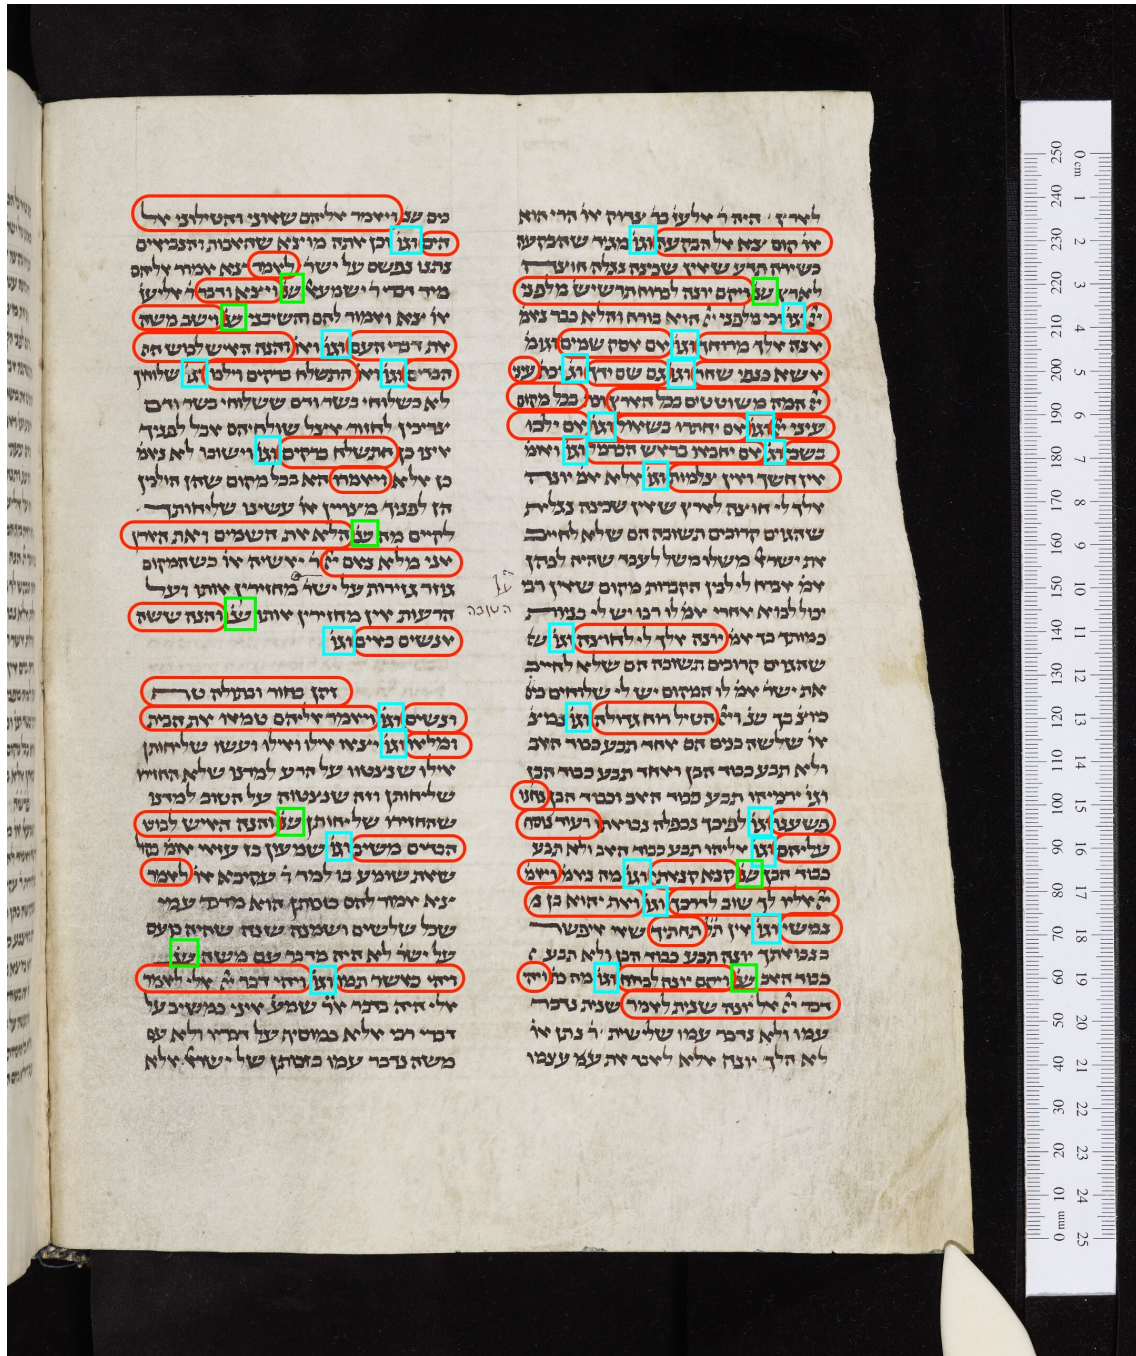 לארץ היה ר׳ אלעז׳ בר׳ צדוק או׳ הרי הוא
או׳ קום צא אל הבקעה וגו׳ מגיד שהבקעה
כשירה תדע שאין שכינה נגלה חוצה
לארץ שנ׳ ויקם יונה לברוח תרשיש מלפני
ייי וגו׳ וכי מלפני ייי הוא בורח והלא כבר נאמ׳
אנה אלך מרוחך וגו׳ אם אסק שמים וגומ׳
אשא כנפי שחר וגו׳ גם שם ידך וגו׳ וכת׳ עיני
ייי המה משוטטים בכל הארץ וכת׳ בכל מקום
עיני ייי וגו׳ אם יחתרו בשאול וגו׳ אם ילכו
בשבי וגו׳ אם יחבאו בראש הכרמל וגו׳ ואומ׳
אין חשך ואין צלמות וגו׳ אלא אמ׳ יונה
אלך לי חוצה לארץ שאין שכינה נגלית
שהגוים קרובים תשובה הם שלא לחייב
את ישר׳ משלו משל לעבד שהיה לכהן
אמ׳ אברח לי לבין הקברות מקום שאין רבי
יכול לבוא אחרי אמ׳ לו רבו יש לי כנענים
כמותך כך אמ׳ יונה אלך לי לחוצה וגו׳ ש׳
שהגוים קרובים תשובה הם שלא לחייב
את ישר׳ אמ׳ לו המקום יש לי שלוחים כיו׳
כיוצ׳ בך שנ׳ וייי הטיל רוח גדולה וגו׳ נמצ׳
או׳ שלשה בנים הם אחד תבע כבוד האב
ולא תבע כבוד הבן ואחד תבע כבוד הבן
וגו׳ ירמיהו תבע כבוד האב וכבוד הבן נחנו
פשענו וגו׳ לפיכך נכפלה נבואתו ועוד נוסף
עליהם וגו׳ אליהו תבע כבוד האב ולא תבע
כבוד הבן שנ׳ קנא קנאתי וגו׳ מה נאמ׳ ויאמ׳
ייי אליו לך שוב לדרכך וגו׳ ואת יהוא בן נ׳
נמשי וגו׳ אין תל׳ תחתיך שאי איפשר
בנבואתך יונה תבע כבוד הבן ולא תבע
כבוד האב שנ׳ ויקם יונה לברוח וגו׳ מה נא׳ ויהי
דבר ייי אל יונה שנית לאמר שנית נדבר
עמו ולא נדבר עמו שלישית ר׳ נתן או׳
לא הלך יונה אלא לאבד את עצ׳ עצמו
הן
על
השובה
בים שנ׳ ויאמר אליהם שאוני והטילוני אל
הים וגו׳ וכן אתה מוצא שהאבות והנביאים
נתנו נפשם על ישר׳ לאמר צא אמור אליהם
מיד דברי ר׳ ישמעא׳ שנ׳ ויצא וידבר ר׳ אליעז׳
או׳ צא ואמור להם והשיבני שנ׳ וישב משה
את דברי העם וגו׳ ואו׳ והנה האיש לבוש הב׳
הבדים וגו׳ ואו׳ התשלח ברקים וילכו וגו׳ שלוחיך
לא כשלוחי בשר ודם ששלוחי בשר ודם
צריכין לחזור אצל שולחיהם אבל לפניך
אינו כן התשלח ברקים וגו׳ וישובו לא נאמ׳
כן אלא ויאמרו הא בכל מקום שהן הולכין
הן לפניך מצויין או׳ עשינו שליחותך
לקיים מה שנ׳ הלא את השמים ואת הארץ
אני מלא נאם ייי ר׳ יאשיה או׳ כשהמקום
גוזר גזירות על ישר׳ מחזירין אותו ועל
הדעות אין מחזירין אותו שנ׳ והנה ששה
אנשים באים וגו׳
זקן בחור ובתולה טף
ונשים וגו׳ ויאמר אליהם טמאו את הבית
ומלאו וגו׳ יצאו אילו ואילו ועשו שליחותן
אילו שנצטוו על הרע למדנו שלא החזירו
שליחותן וזה שנצטווה על הטוב למדנו
שהחזירו שליחותן שנ׳ והנה האיש לבוש
הבדים משיב וגו׳ שמעון בן עזאי אומ׳ בכל
שאת שומע בו למד ר׳ עקיבא או׳ לאמר
צא אמור להם בזכותן הוא מדבר עמי
שכל שלשים ושמנה שנה שהיה כועס
על ישר׳ לא היה מדבר עם משה שנ׳
ויהי כאשר תמו וגו׳ וידבר ייי אלי לאמר
אלי היה מדבר אר׳ שמע׳ איני כמשיב על
דברי רבי אלא כמוסיף על דבריו ולא עם
משה נדבר עמו בזכותן של ישר׳ אלא